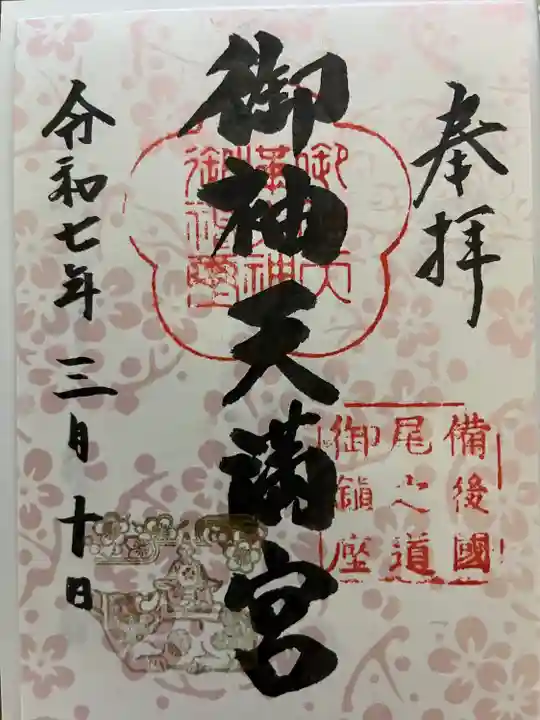 奉拝
備後國
尾之道
御鎮座
御袖天満宮
令和七年三月十日